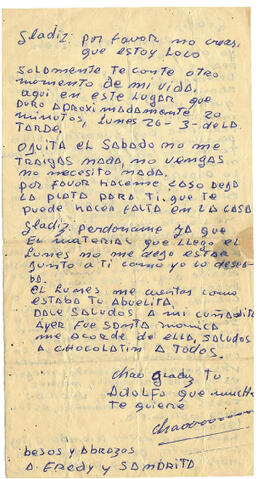 Gladiz: por favor no creas,
que estoy loco
Solamente te conte otro
momento de mi vida,
aqui en este lugar que
duro aproximadamente 20
minutos, lunes 26-3- de la
tarde.
Oguita el sabado no me
traigas nada, no vengas
no necesito nada,
por favor haceme caso deja
la plata para ti, que te
puede hacer falta en la casa
Gladiz: perdoname ya que
el material que llego el
lunes no me dejo estar
junto a ti como yo lo desea-
ba.
el lunes me cuentas como
estaba tu abuelita,
dale saludos a mi cuñadita
Ayer fue santa monica
me acorde de ella, saludos
a chocolatin a todos.
chao gladiz tu
Adolfo que mucho
te quiere
chaooooooo
besos y abrazos
a Fredy y Sandrita